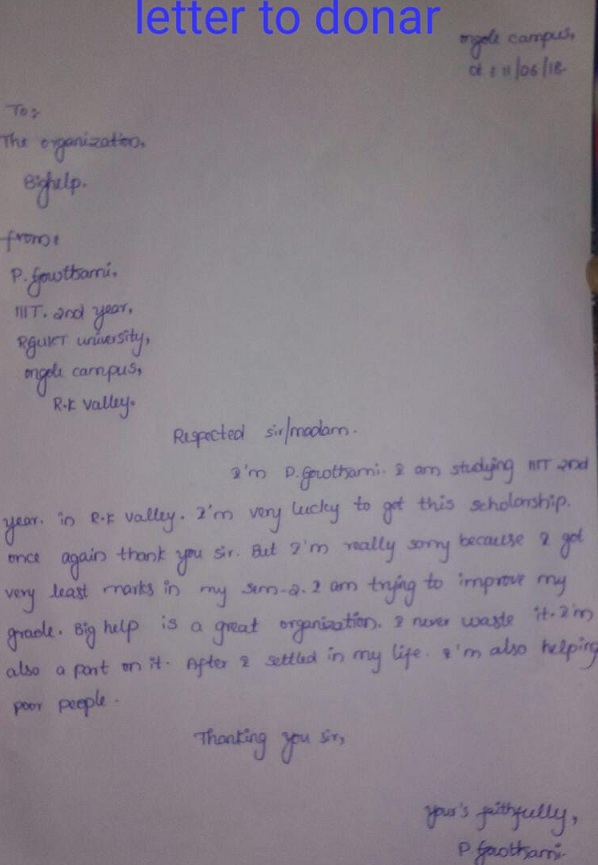 letter to donar
ongole campus,
dt : 11/06/18.
To:
The organization,
Bighelp.
from:
P. Gowthami.
IIIT. 2nd year,
RGUKT university,
ongole campus,
R.K Valley.
Respected sir/madam.
I'm P. Gowthami. I am studying IIIT 2nd
year. in R.K Valley. I'm very lucky to get this scholarship.
once again thank you sir. But I'm really sorry because I got
very least marks in my sem-2. I am trying to improve my
grade. Big help is a great organization. I never waste it. I'm
also a part on it. After I settled in my life. I'm also helping
poor people.
Thanking you sir,
your's faithfully,
P. Gowthami